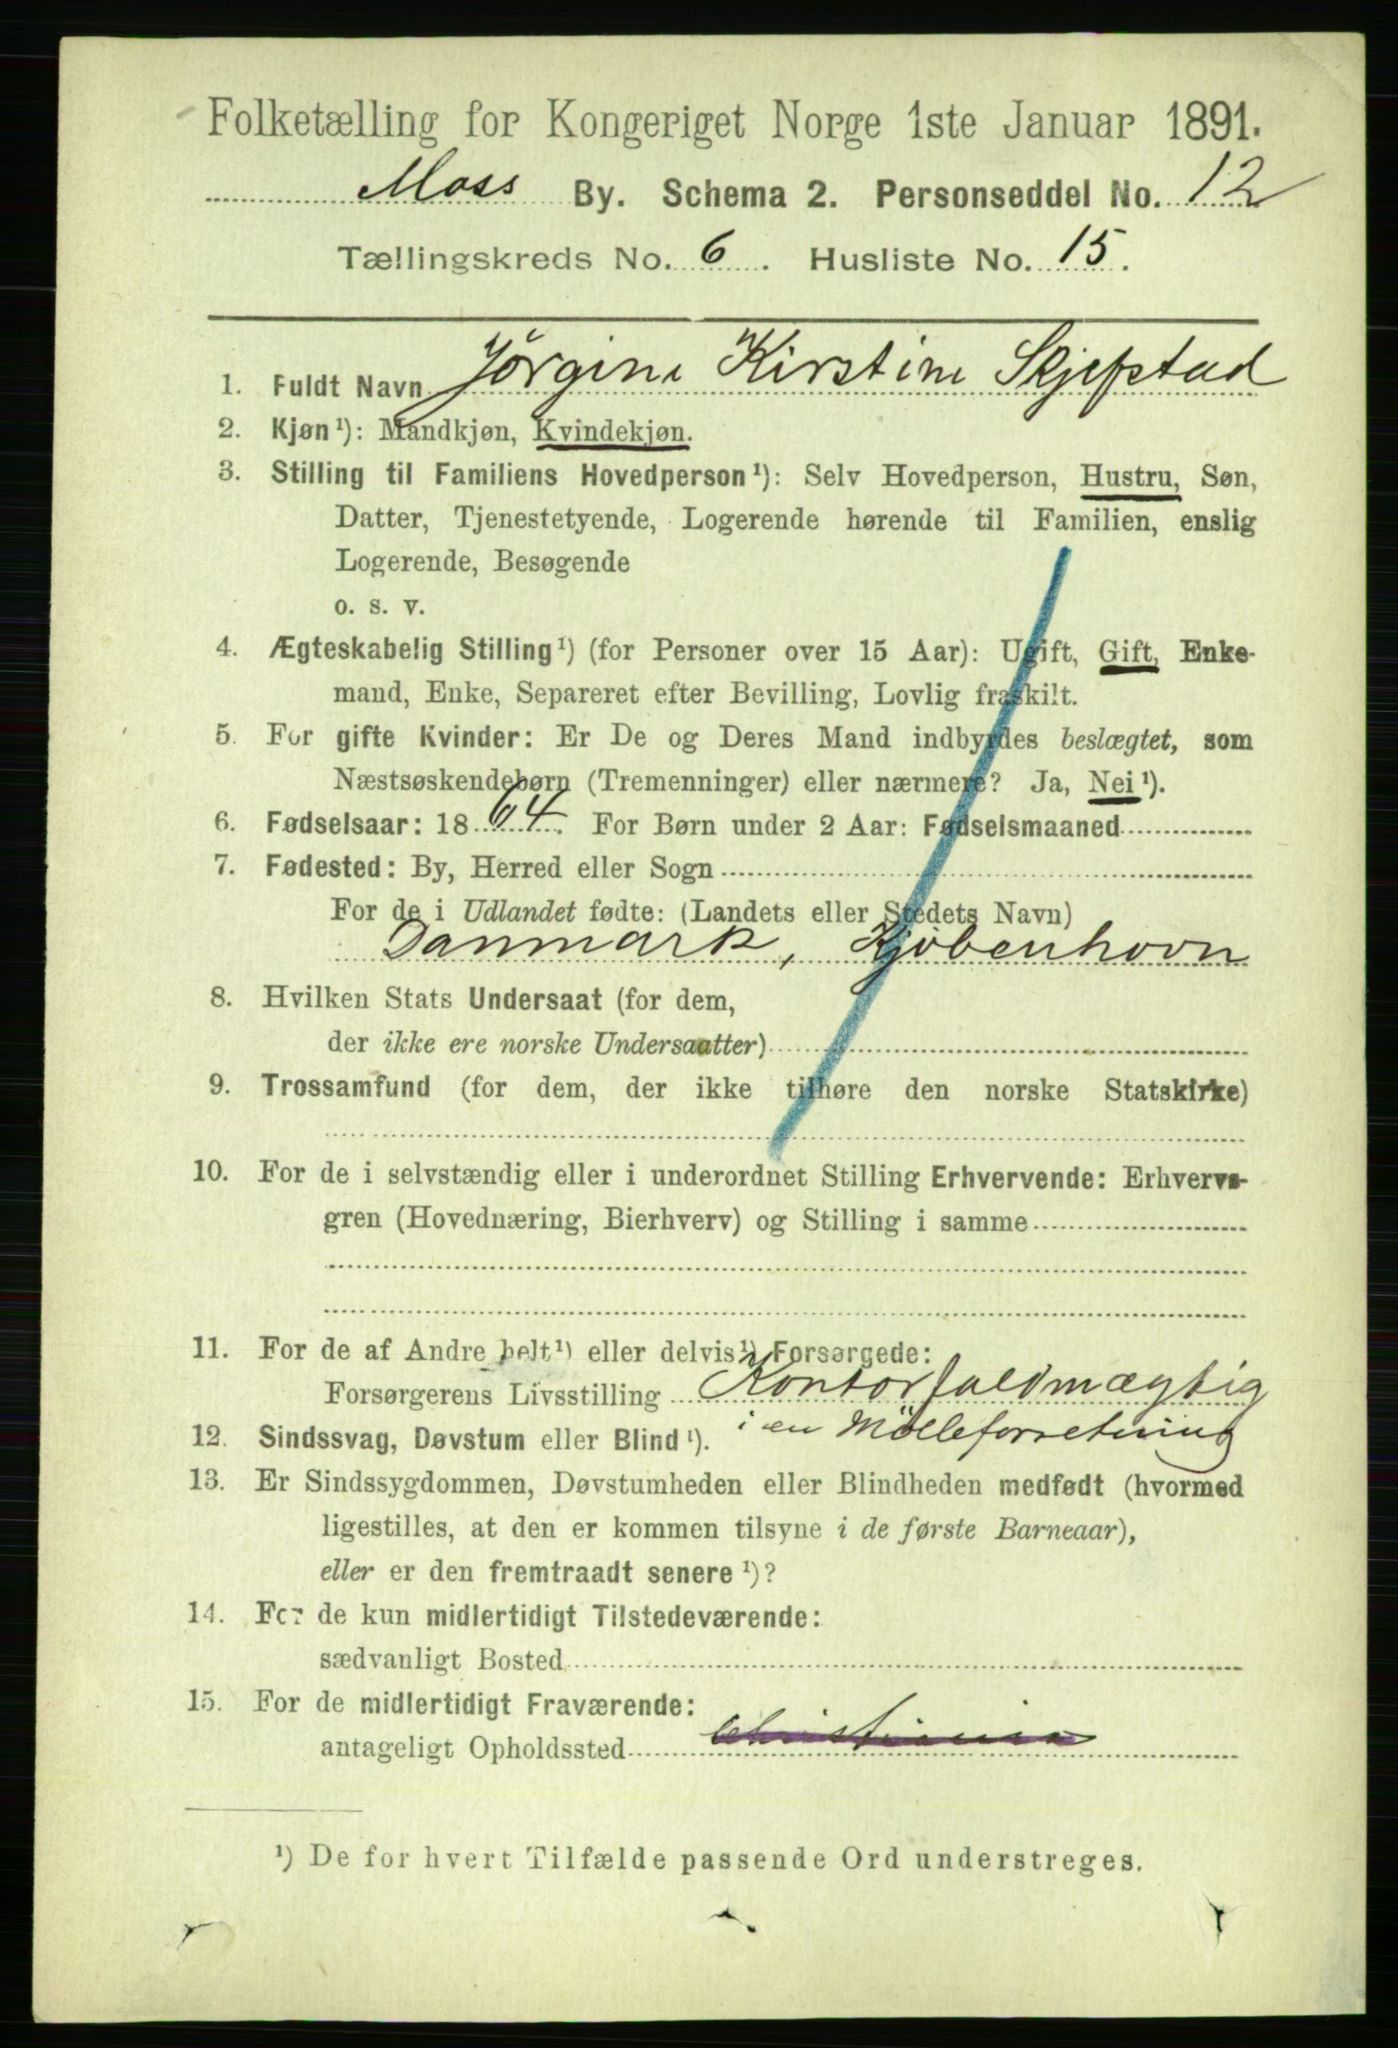 Folketælling for Kongeriget Norge 1ste Januar 1891.
Moss By. Schema 2. Personseddel No. 12
Tællingskreds No. 6. Husliste No. 15.
1. Fuldt Navn Jörgine Kirstine Skjefstad
2. Kjøn¹): Mandkjøn, Kvindekjøn.
3. Stilling til Familiens Hovedperson¹): Selv Hovedperson, Hustru, Søn,
Datter, Tjenestetyende, Logerende hørende til Familien, enslig
Logerende, Besøgende
o. s. v.
4. Ægteskabelig Stilling¹) (for Personer over 15 Aar): Ugift, Gift, Enke-
mand, Enke, Separeret efter Bevilling, Lovlig fraskilt.
5. For gifte Kvinder: Er De og Deres Mand indbyrdes beslægtet, som
Næstsøskendebørn (Tremenninger) eller nærmere? Ja, Nei¹).
6. Fødselsaar: 1864. For Børn under 2 Aar: Fødselsmaaned
7. Fødested: By, Herred eller Sogn
For de i Udlandet fødte: (Landets eller Stedets Navn)
Danmark, Kjøbenhovn
8. Hvilken Stats Undersaat (for dem,
der ikke ere norske Undersaatter)
9. Trossamfund (for dem, der ikke tilhøre den norske Statskirke)
10. For de i selvstændig eller i underordnet Stilling Erhvervende: Erhvervs-
gren (Hovednæring, Bierhverv) og Stilling i samme
11. For de af Andre helt¹) eller delvis¹) Forsørgede:
Forsørgerens Livsstilling Kontorfuldmægtig
i en Mölleforretning
12. Sindssvag, Døvstum eller Blind¹).
13. Er Sindssygdommen, Døvstumheden eller Blindheden medfødt (hvormed
ligestilles, at den er kommen tilsyne i de første Barneaar),
eller er den fremtraadt senere¹)?
14. For de kun midlertidigt Tilstedeværende:
sædvanligt Bosted
15. For de midlertidigt Fraværende:
antageligt Opholdssted Christiania
¹) De for hvert Tilfælde passende Ord understreges.